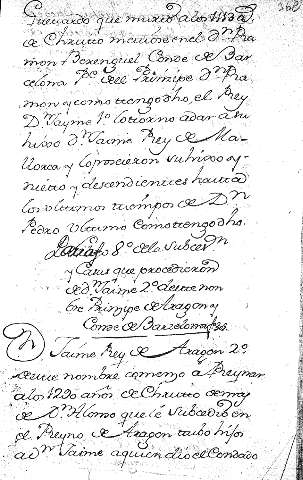 que murio a los 1113 a.
de Christo en el dn Ra
mon Berenguel Conde de Bar
celona Pe del Principe dn Ra
mon y como tengo dho, el Rey
Dn Jayme 1o lo torno a dar a su
hijo dn Jaime Rey de Ma
llorca y lo poseieron su hijo y
nieto y descendientes hasta
los ultimos tiempos de Dn
Pedro ultimo como tengo dho.
8o de la Subcesn
y Casas que procedieron
de dn Jaime 2o de este nom
bre Principe de Aragon y
Conde de Barzelona
Dn Jaime Rey de Aragon 2o
de este nombre comenzo a Reynar
a los 1290 años de Christo
a Dn Alonso que le Subcedio en
el Reyno de Aragon tubo hijos
a dn Jaime a quien dio el Condado